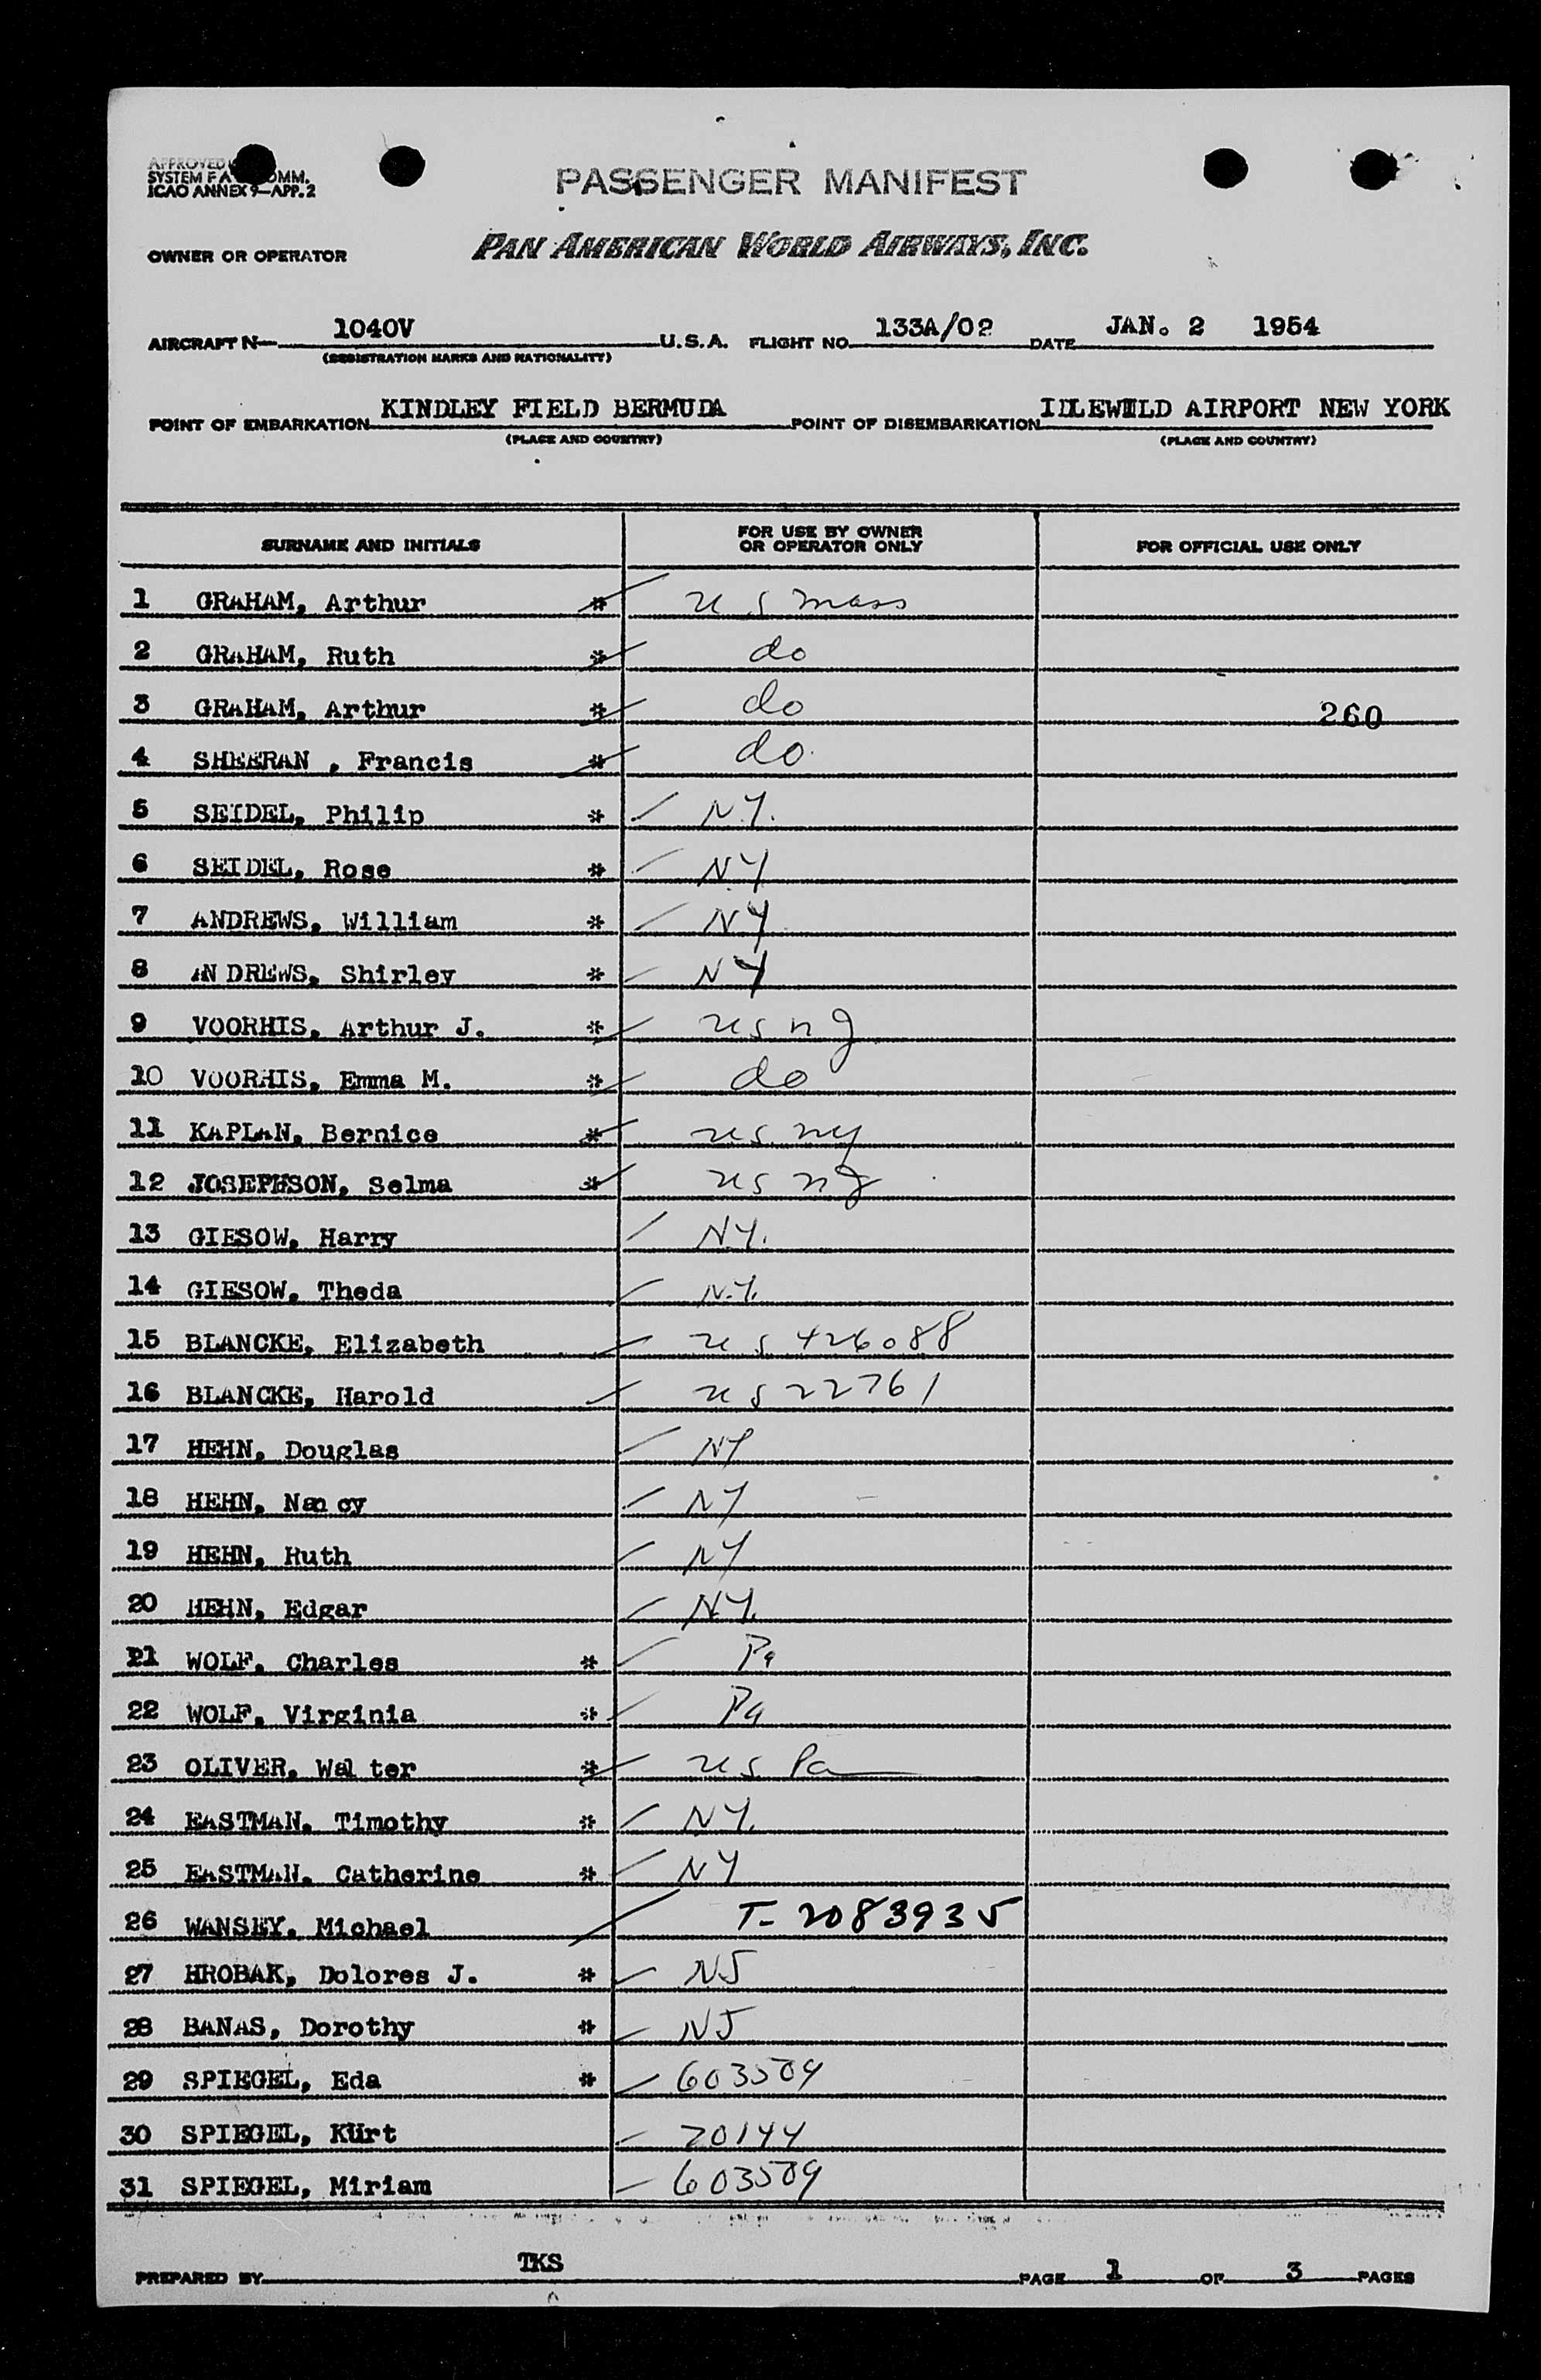 APPROVED
SYSTEM F A COMM.
ICAO ANNEX 9—APP. 2
PASSENGER MANIFEST
OWNER OR OPERATOR PAN AMERICAN WORLD AIRWAYS, INC.
AIRCRAFT N— 1040V U.S.A. FLIGHT NO. 133A/02 DATE JAN. 2 1954
(REGISTRATION MARKS AND NATIONALITY)
POINT OF EMBARKATION KINDLEY FIELD BERMUDA POINT OF DISEMBARKATION IDLEWILD AIRPORT NEW YORK
(PLACE AND COUNTRY) (PLACE AND COUNTRY)
SURNAME AND INITIALS FOR USE BY OWNER OR OPERATOR ONLY FOR OFFICIAL USE ONLY
1 GRAHAM, Arthur * us mass
2 GRAHAM, Ruth * do
3 GRAHAM, Arthur * do 260
4 SHEERAN , Francis * do
5 SEIDEL, Philip * N.Y.
6 SEIDEL, Rose * NY
7 ANDREWS, William * NY
8 AN DREWS, Shirley * NY
9 VOORHIS, Arthur J. * us nj
10 VOORHIS, Emma M. * do
11 KAPLAN, Bernice * us ny
12 JOSEPHSON, Selma * us ny
13 GIESOW, Harry NY.
14 GIESOW, Theda N.Y.
15 BLANCKE, Elizabeth us 426088
16 BLANCKE, Harold us 22761
17 HEHN, Douglas NY
18 HEHN, Nan cy NY
19 HEHN, Ruth NY
20 HEHN, Edgar N.Y.
21 WOLF, Charles * Pa
22 WOLF, Virginia * Pa
23 OLIVER, Wal ter * us Pa
24 EASTMAN, Timothy * NY.
25 EASTMAN, Catherine * NY
26 WANSEY, Michael T-2083935
27 HROBAK, Dolores J. * NJ
28 BANAS, Dorothy * NJ
29 SPIEGEL, Eda * 603509
30 SPIEGEL, Kurt 20144
31 SPIEGEL, Miriam 603509
PREPARED BY TKS PAGE 1 OF 3 PAGES